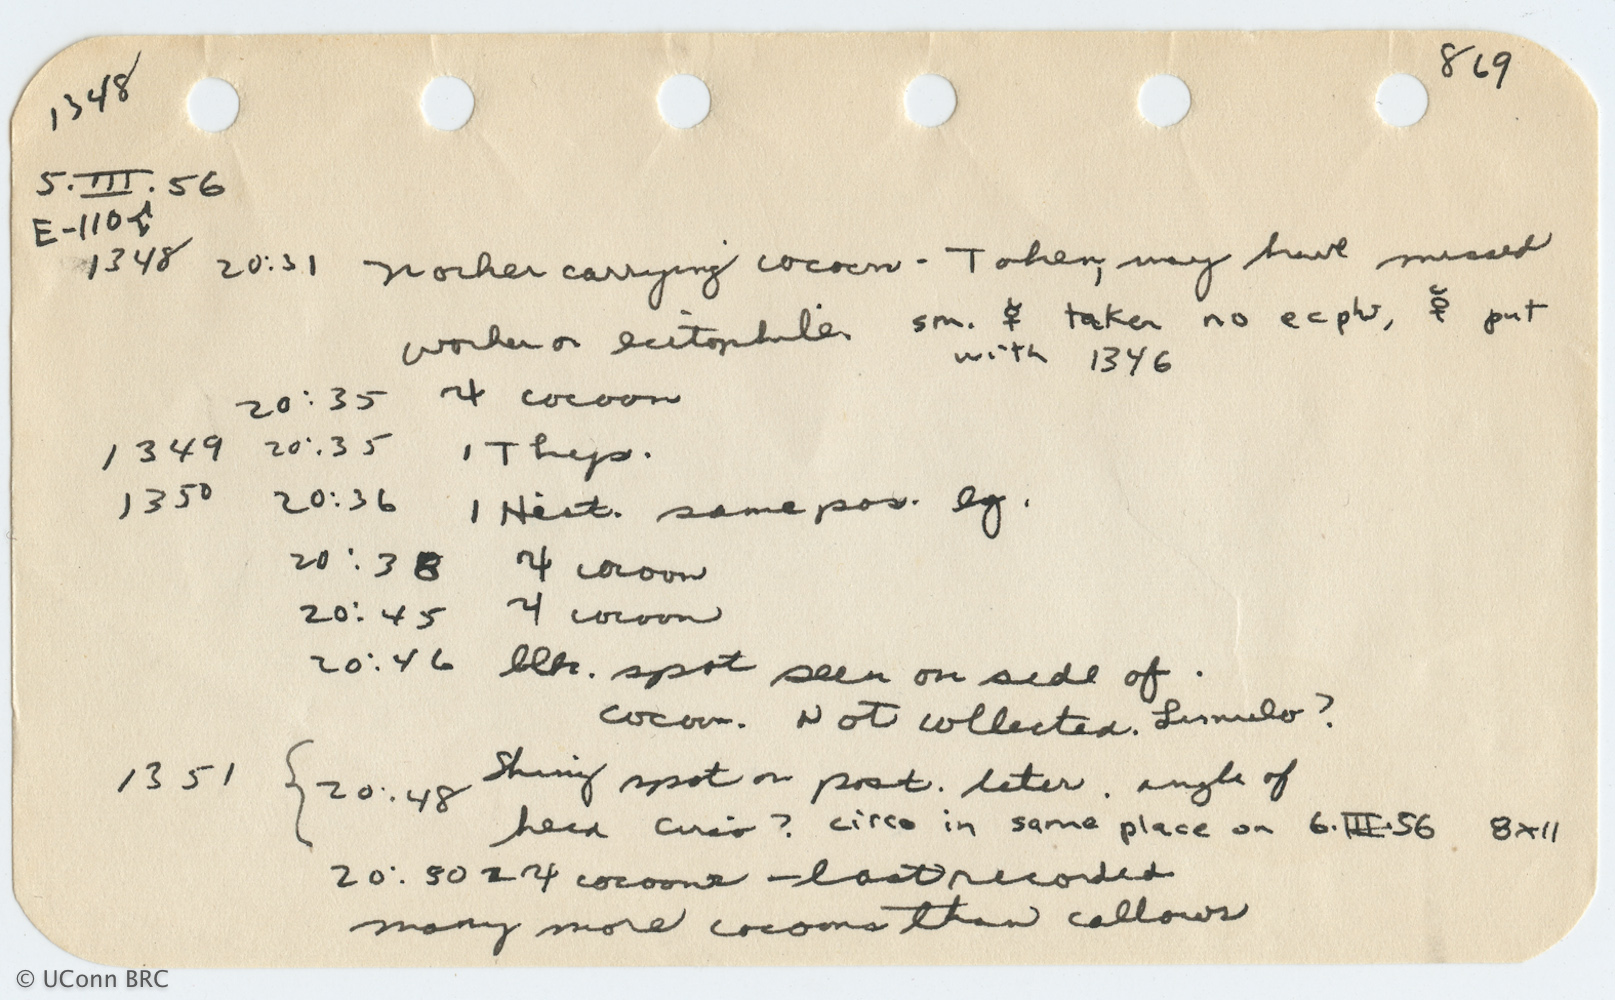 1348
869
5.III.56
E-110
1348 20:31 worker carrying cocoon - Taken, may have missed
worker or ecitophile. sm. ☿ taken no ecph, ☿ put
with 1346
20:35 4 cocoon
1349 20:35 1 Theps.
1350 20:36 1 Hist. same pos. lg.
20:38 4 cocoon
20:45 4 cocoon
20:46 blk. spot seen on side of
cocoon. Not collected. Limulo?
1351 20:48 Shiny spot on post. later. angle of
head circo? circo in same place on 6.III.56 8x11
20:50 2 4 cocoons - last recorded
many more cocoons than callows
© UConn BRC